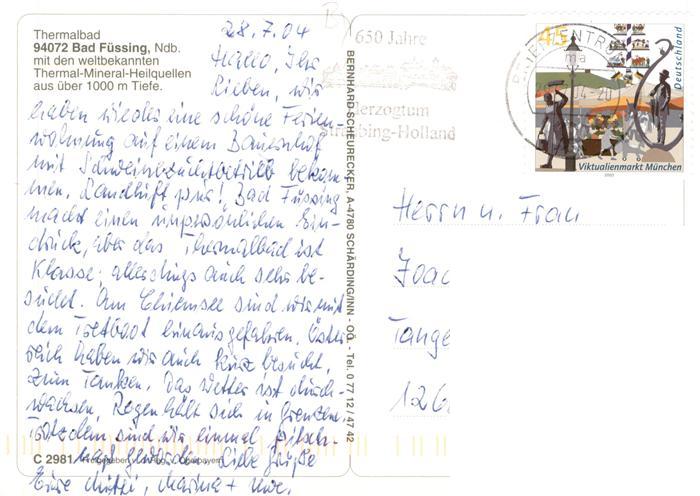 Thermalbad
94072 Bad Füssing, Ndb.
mit den weltbekannten
Thermal-Mineral-Heilquellen
aus über 1000 m Tiefe.
28.7.04
Hallo, Ihr
Lieben, wir
haben wieder eine schöne Ferien-
wohnung auf einem Bauernhof
mit Schweinezuchtbetrieb bekom-
men. Landluft pur! Bad Füssing
macht einen unpersönlichen Ein-
druck, aber das Thermalbad ist
Klasse; allerdings auch sehr be-
sucht. Am Chiemsee sind wir mit
dem Tretboot hinausgefahren. Öster-
reich haben wir auch kurz besucht,
zum Tanken. Das Wetter ist durch-
wachsen, Regen hält sich in Grenzen.
Trotzdem sind wir einmal pitsch-
naß geworden. Liebe Grüße
Eure Mutti, Marina + Uwe.
C 2981 Freigegeben v. Reg. v. Oberbayern
BERNHARD SCHEURECKER, A-4780 SCHÄRDING/INN - OÖ. · Tel. 0 77 12 / 47 42
650 Jahre
Herzogtum
Straubing-Holland
BRIEFZENTRUM
45
Deutschland
Viktualienmarkt München
2003
Herrn u. Frau
Joac
Tange
126